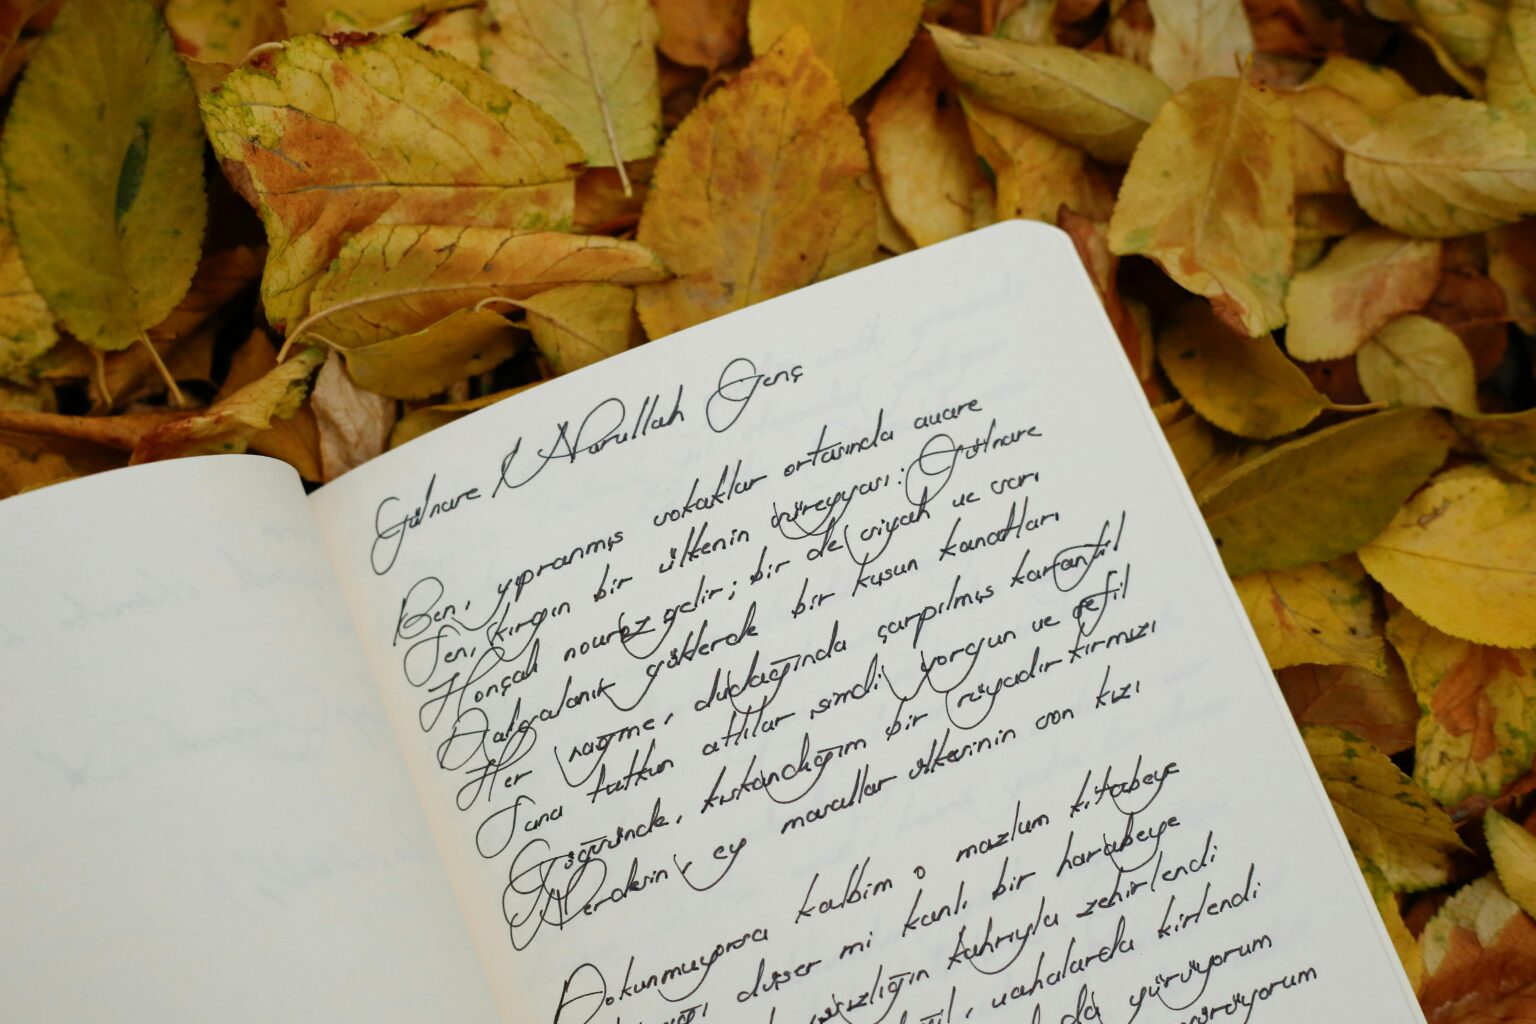 Gülnare / Nurullah Genç
Ben, yıpranmış sokaklar ortasında avare
Sen, kırgın bir ülkenin süreyyası: Gülnare
Honçalı novruz gelir; bir de siyah ve sarı
Dalgalanır göklerde bir kuşun kanatları
Her nağme, dudağında çarpılmış karanfil
Sana tutkun atlılar şimdi yorgun ve sefil
Göğsünde, kıskandığım bir rüyadır kırmızı
Nerdesin ey marallar ülkesinin son kızı
Dokunmuyorsa kalbim o mazlum kitabeye
düşer mi kanlı bir harabeye
kahrıyla zehirlendi
vahalarda kirlendi
yürüyorum